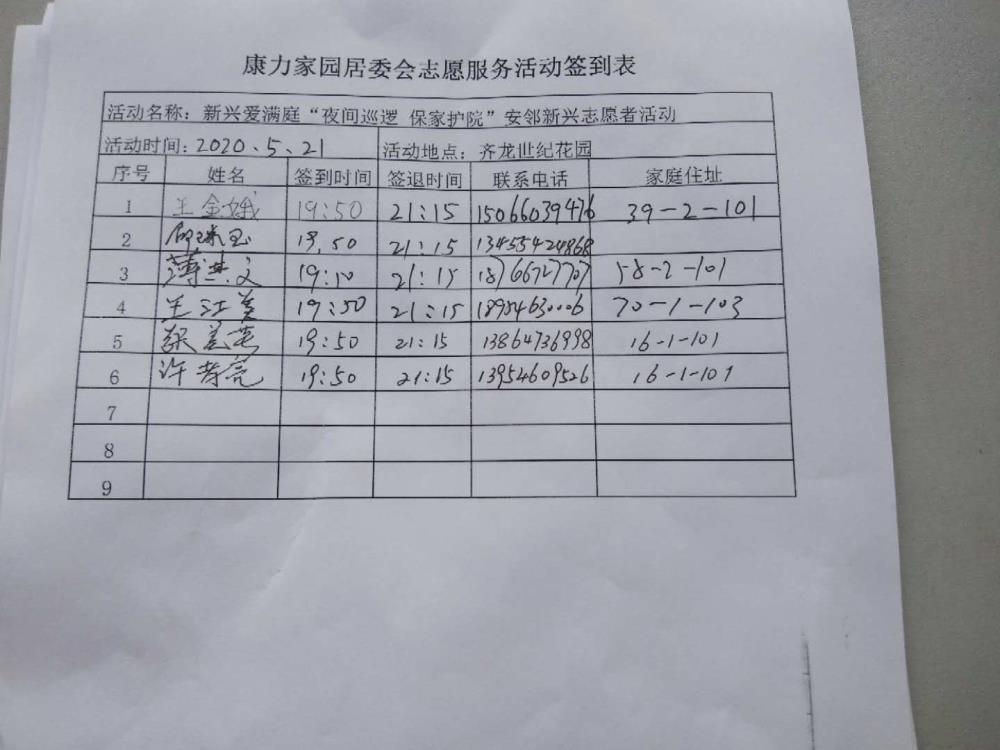 康力家园居委会志愿服务活动签到表
活动名称：新兴爱满庭“夜间巡逻 保家护院”安邻新兴志愿者活动
活动时间：2020.5.21 活动地点：齐龙世纪花园
序号 姓名 签到时间 签退时间 联系电话 家庭住址
1 王金娥 19:50 21:15 15066039476 39-2-101
2 19,50 21:15 13455424868
3 薄其文 19:50 21:15 18766727707 58-2-101
4 王江美 19:50 21:15 18954630006 70-1-103
5 19:50 21:15 13864736998 16-1-101
6 许孝亮 19:50 21:15 13954609526 16-1-101
7
8
9